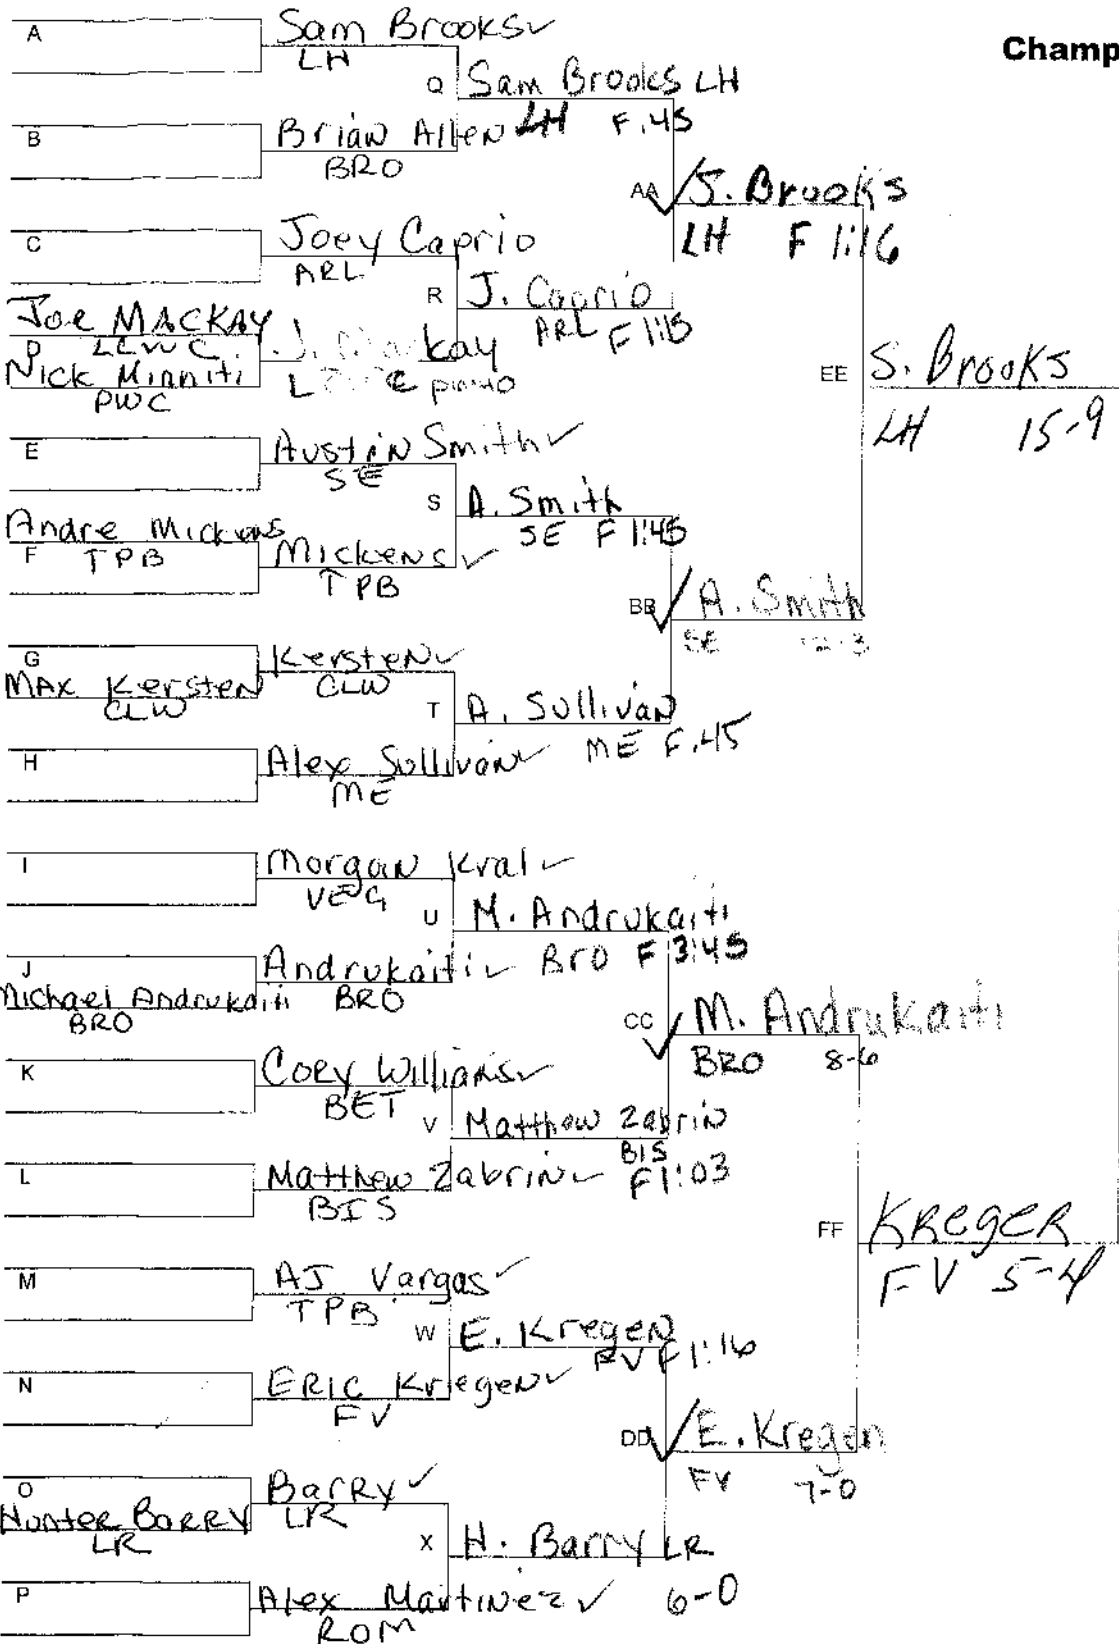 A
Sam Brooks
LH
Champ
Q
Sam Brooks LH
LH F.45
B
Brian Allen
BRO
AA
S. Brooks
LH F 1:16
C
Joey Caprio
ARL
R
J. Caprio
ARL F 1:15
Joe MACKAY
D
Nick Minniti
PWC
kay
EE
S. Brooks
LH 15-9
E
Austin Smith
SE
S
A. Smith
SE F 1:45
Andre Mickens
F
TPB
Mickens
TPB
BB
A. Smith
SE
G
MAX Kersten
CLW
Kersten
CLW
T
A. Sullivan
ME F.45
H
Alex Sullivan
ME
I
Morgan Kral
VEG
U
M. Andrukaiti
BRO F 3:45
J
Michael Andrukaiti
BRO
Andrukaiti
BRO
CC
M. Andrukaiti
BRO 8-6
K
Cory Williams
BET
V
Matthew Zabrin
BIS
F 1:03
L
Matthew Zabrin
BIS
FF
KREGER
FV 5-4
M
AJ Vargas
TPB
W
E. Kregen
F 1:16
N
ERIC Kriegen
FV
DD
E. Kregen
FV 7-0
O
Hunter BARRY
LR
Barry
LR
X
H. Barry LR
6-0
P
Alex Martinez
ROM